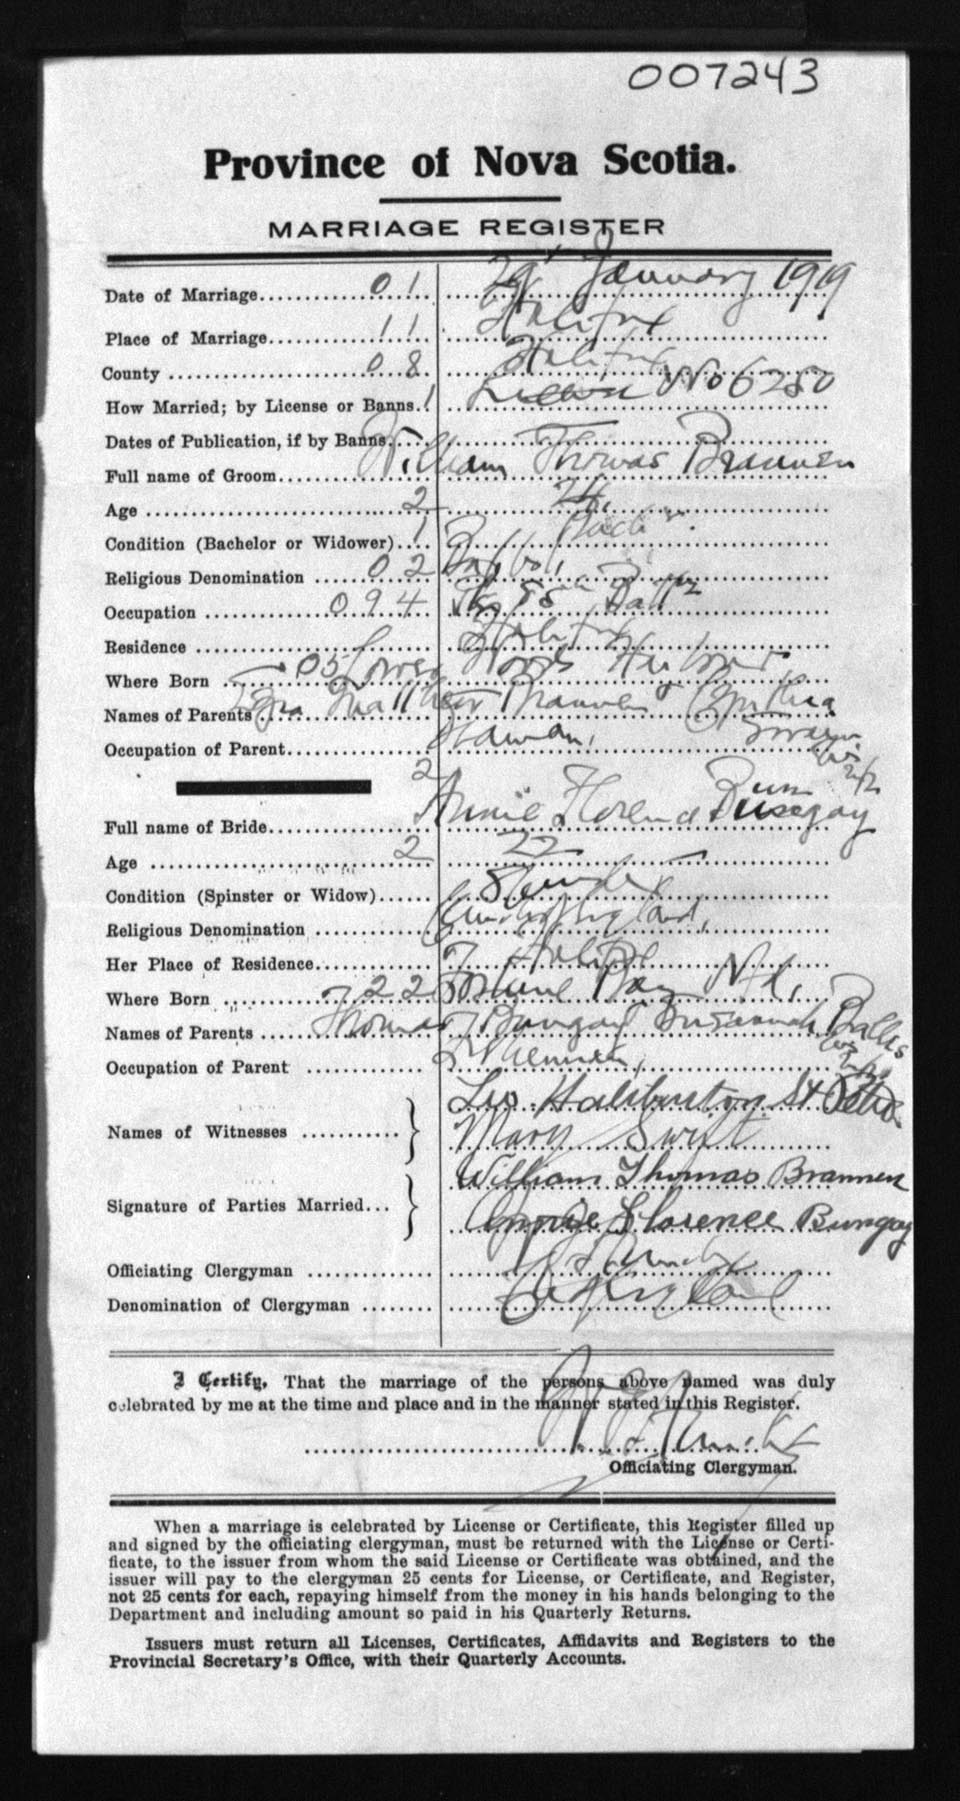 007243
Province of Nova Scotia.
MARRIAGE REGISTER
Date of Marriage 01 29 January 1919
Place of Marriage 11 Halifax
County 08 Halifax
How Married; by License or Banns 1 License No 6280
Dates of Publication, if by Banns
Full name of Groom William Thomas Brannen
Age 2 24
Condition (Bachelor or Widower) 1 Bach
Religious Denomination 02
Occupation 094 85th Battn
Residence Halifax
Where Born 05 Lower Woods Harbour
Names of Parents Brannen Cynthia
Occupation of Parent
2
Full name of Bride Annie Florence Bungay
Age 2 22
Condition (Spinster or Widow) Spinster
Religious Denomination Church England,
Her Place of Residence Halifax
Where Born 722 Fortune Bay Nfl,
Names of Parents Thomas Bungay Susannah
Occupation of Parent
Names of Witnesses Haliburton St
Mary Swift
Signature of Parties Married William Thomas Brannen
Annie Florence Bungay
Officiating Clergyman
Denomination of Clergyman Ch England
I Certify, That the marriage of the persons above named was duly
celebrated by me at the time and place and in the manner stated in this Register.
Officiating Clergyman.
When a marriage is celebrated by License or Certificate, this Register filled up
and signed by the officiating clergyman, must be returned with the License or Certi-
ficate, to the issuer from whom the said License or Certificate was obtained, and the
issuer will pay to the clergyman 25 cents for License, or Certificate, and Register,
not 25 cents for each, repaying himself from the money in his hands belonging to the
Department and including amount so paid in his Quarterly Returns.
Issuers must return all Licenses, Certificates, Affidavits and Registers to the
Provincial Secretary's Office, with their Quarterly Accounts.